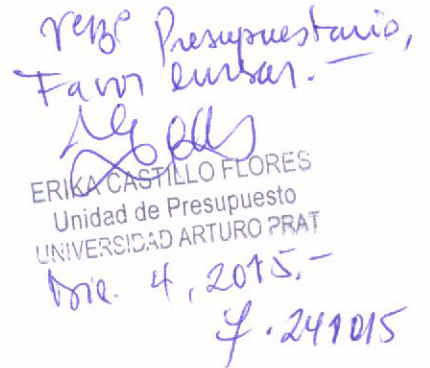 Presupuestario,
Favor cursar.-
ERIKA CASTILLO FLORES
Unidad de Presupuesto
UNIVERSIDAD ARTURO PRAT
Dic. 4, 2015.-
241015